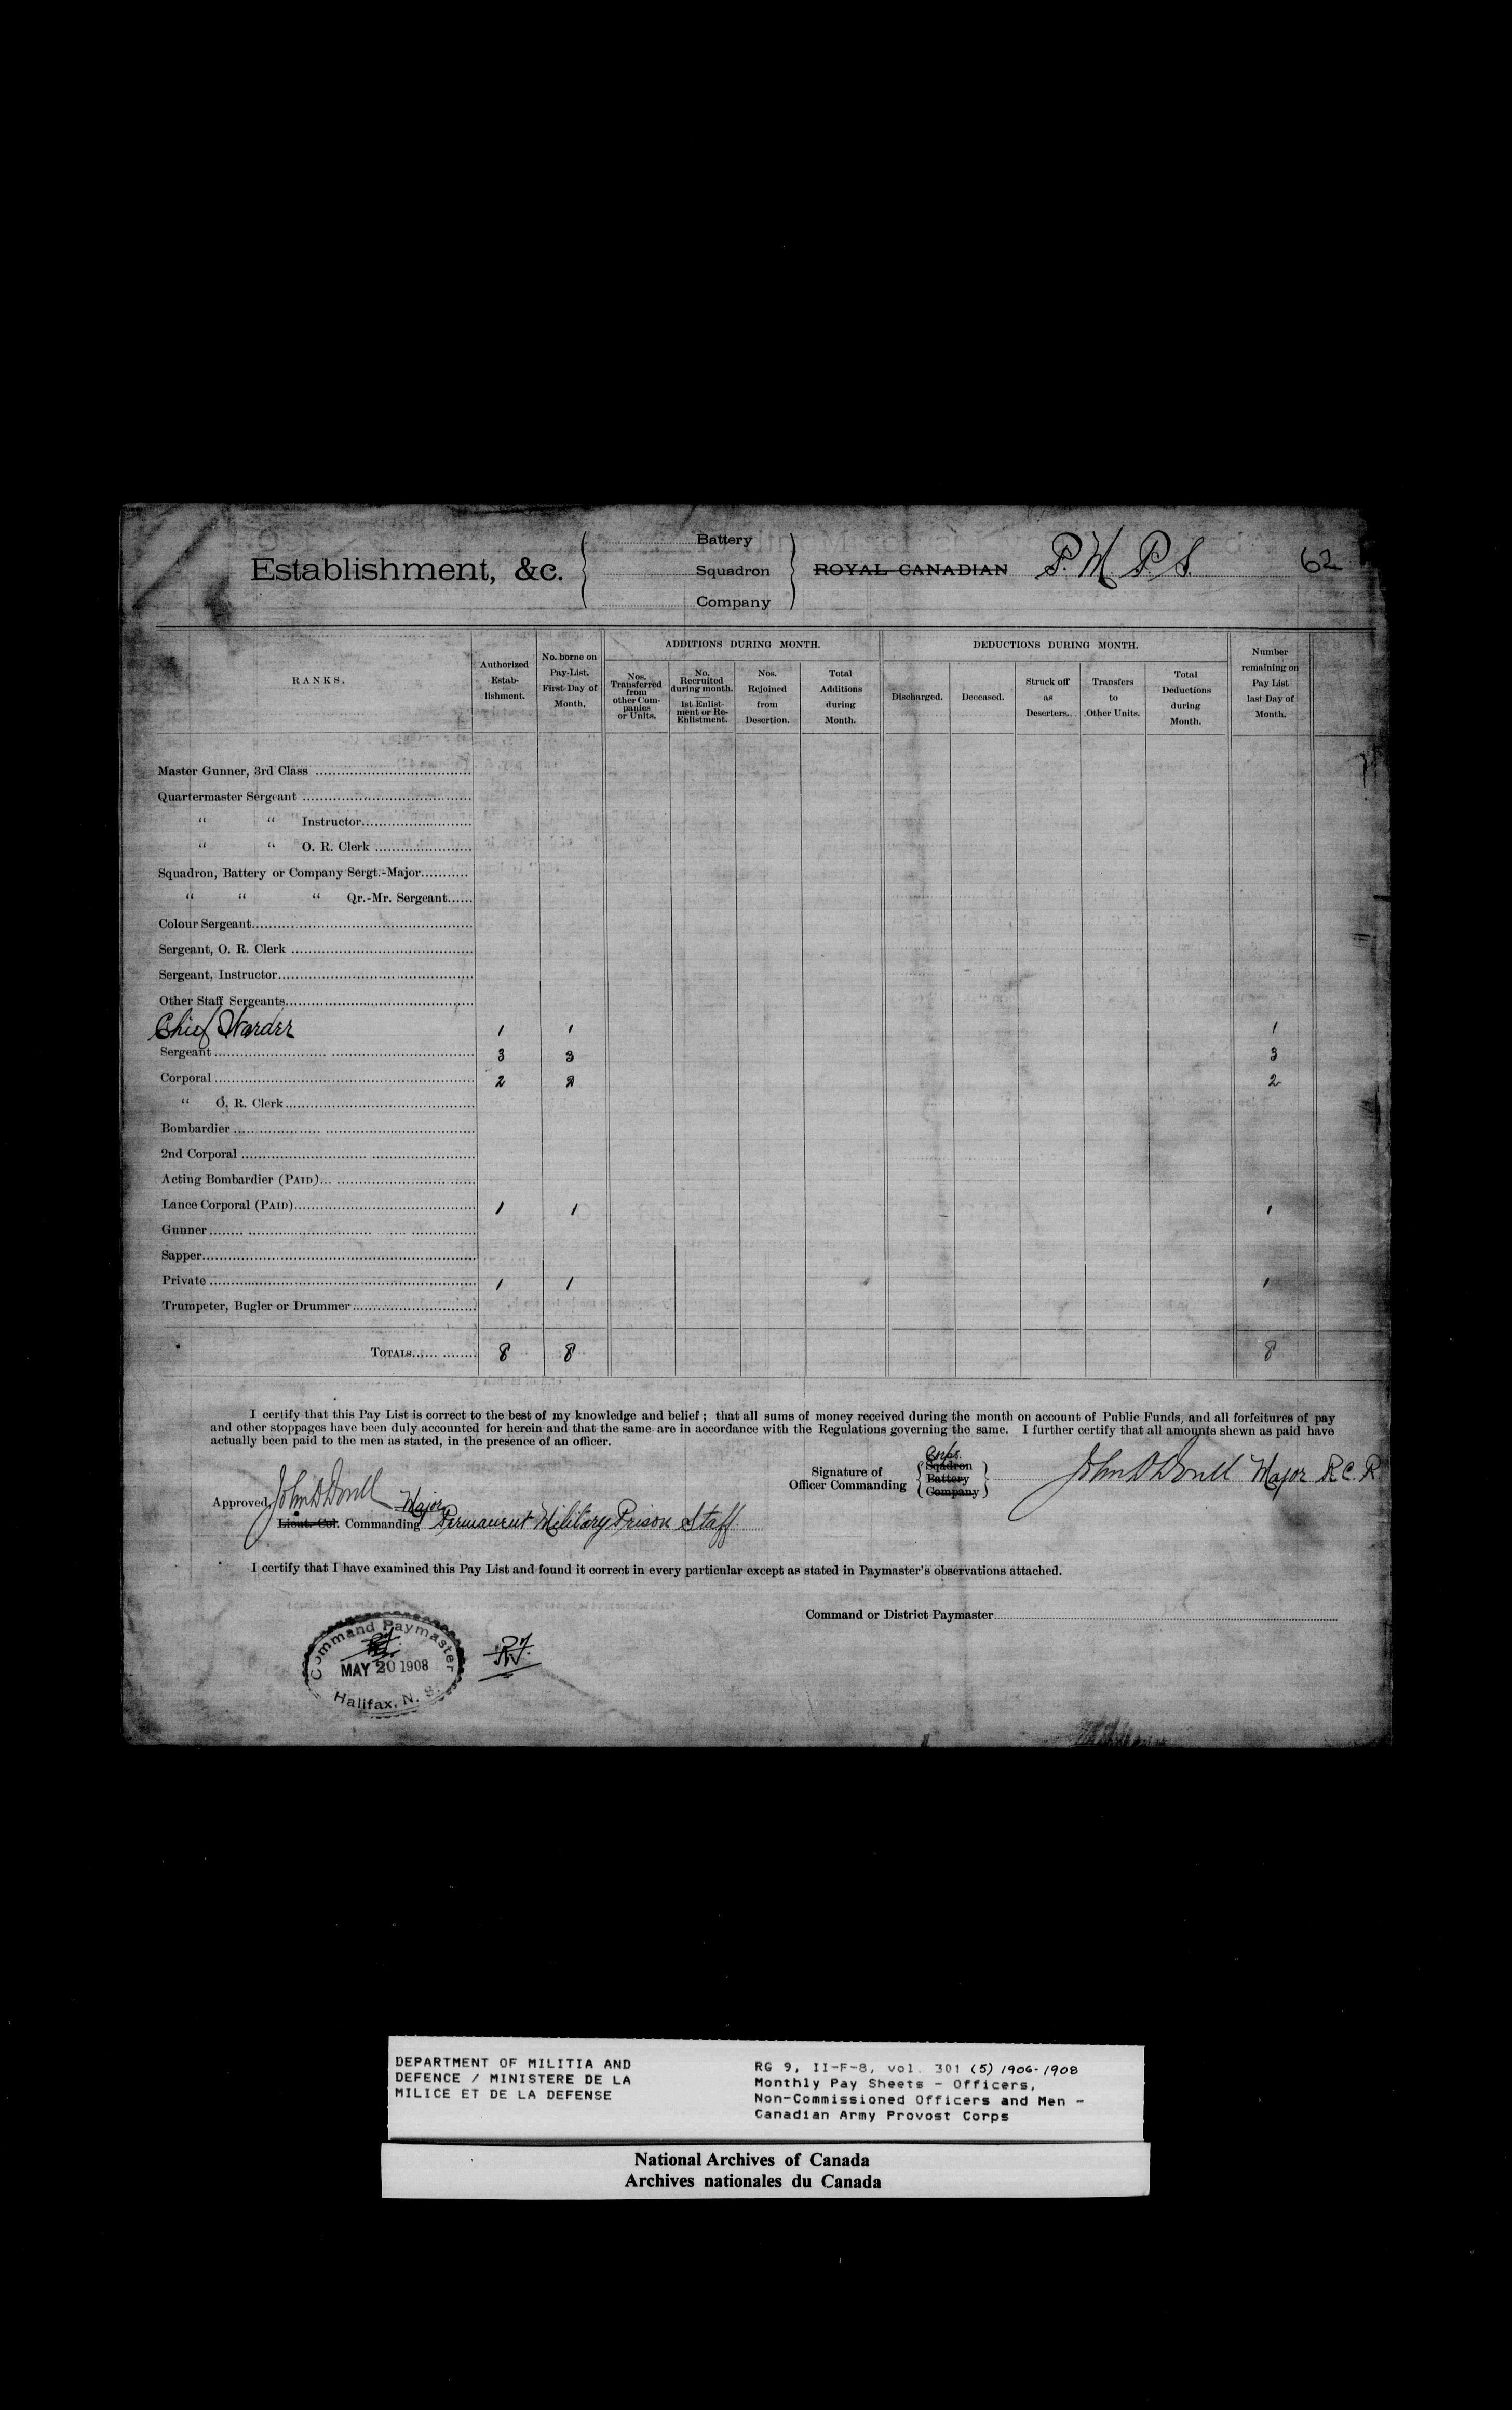 Establishment, &c.
Battery
Squadron
Company
ROYAL CANADIAN P. M. P. S. 62
RANKS.
Authorized Estab- lishment.
No. borne on Pay-List. First Day of Month.
ADDITIONS DURING MONTH.
Nos. Transferred from other Com- panies or Units.
No. Recruited during month. 1st Enlist- ment or Re- Enlistment.
Nos. Rejoined from Desertion.
Total Additions during Month.
DEDUCTIONS DURING MONTH.
Discharged.
Deceased.
Struck off as Deserters.
Transfers to Other Units.
Total Deductions during Month.
Number remaining on Pay List last Day of Month.
Master Gunner, 3rd Class
Quartermaster Sergeant
“ “ Instructor
“ “ O. R. Clerk
Squadron, Battery or Company Sergt.-Major
“ “ “ Qr.-Mr. Sergeant
Colour Sergeant
Sergeant, O. R. Clerk
Sergeant, Instructor
Other Staff Sergeants
Chief Warder 1 1 1
Sergeant 3 3 3
Corporal 2 2 2
“ O. R. Clerk
Bombardier
2nd Corporal
Acting Bombardier (PAID)
Lance Corporal (PAID) 1 1 1
Gunner
Sapper
Private 1 1 1
Trumpeter, Bugler or Drummer
TOTALS 8 8 8
I certify that this Pay List is correct to the best of my knowledge and belief ; that all sums of money received during the month on account of Public Funds, and all forfeitures of pay
and other stoppages have been duly accounted for herein and that the same are in accordance with the Regulations governing the same. I further certify that all amounts shewn as paid have
actually been paid to the men as stated, in the presence of an officer.
Signature of Officer Commanding
Corps.
Sqadron
Battery
Company
Major R. C. R
Approved, Major
Lieut.-Col. Commanding Permanent Military Prison Staff
I certify that I have examined this Pay List and found it correct in every particular except as stated in Paymaster's observations attached.
Command or District Paymaster
Command Paymaster
MAY 20 1908
Halifax, N. S.
DEPARTMENT OF MILITIA AND
DEFENCE / MINISTERE DE LA
MILICE ET DE LA DEFENSE
RG 9, II-F-8, vol. 301 (5) 1906-1908
Monthly Pay Sheets - Officers,
Non-Commissioned Officers and Men -
Canadian Army Provost Corps
National Archives of Canada
Archives nationales du Canada